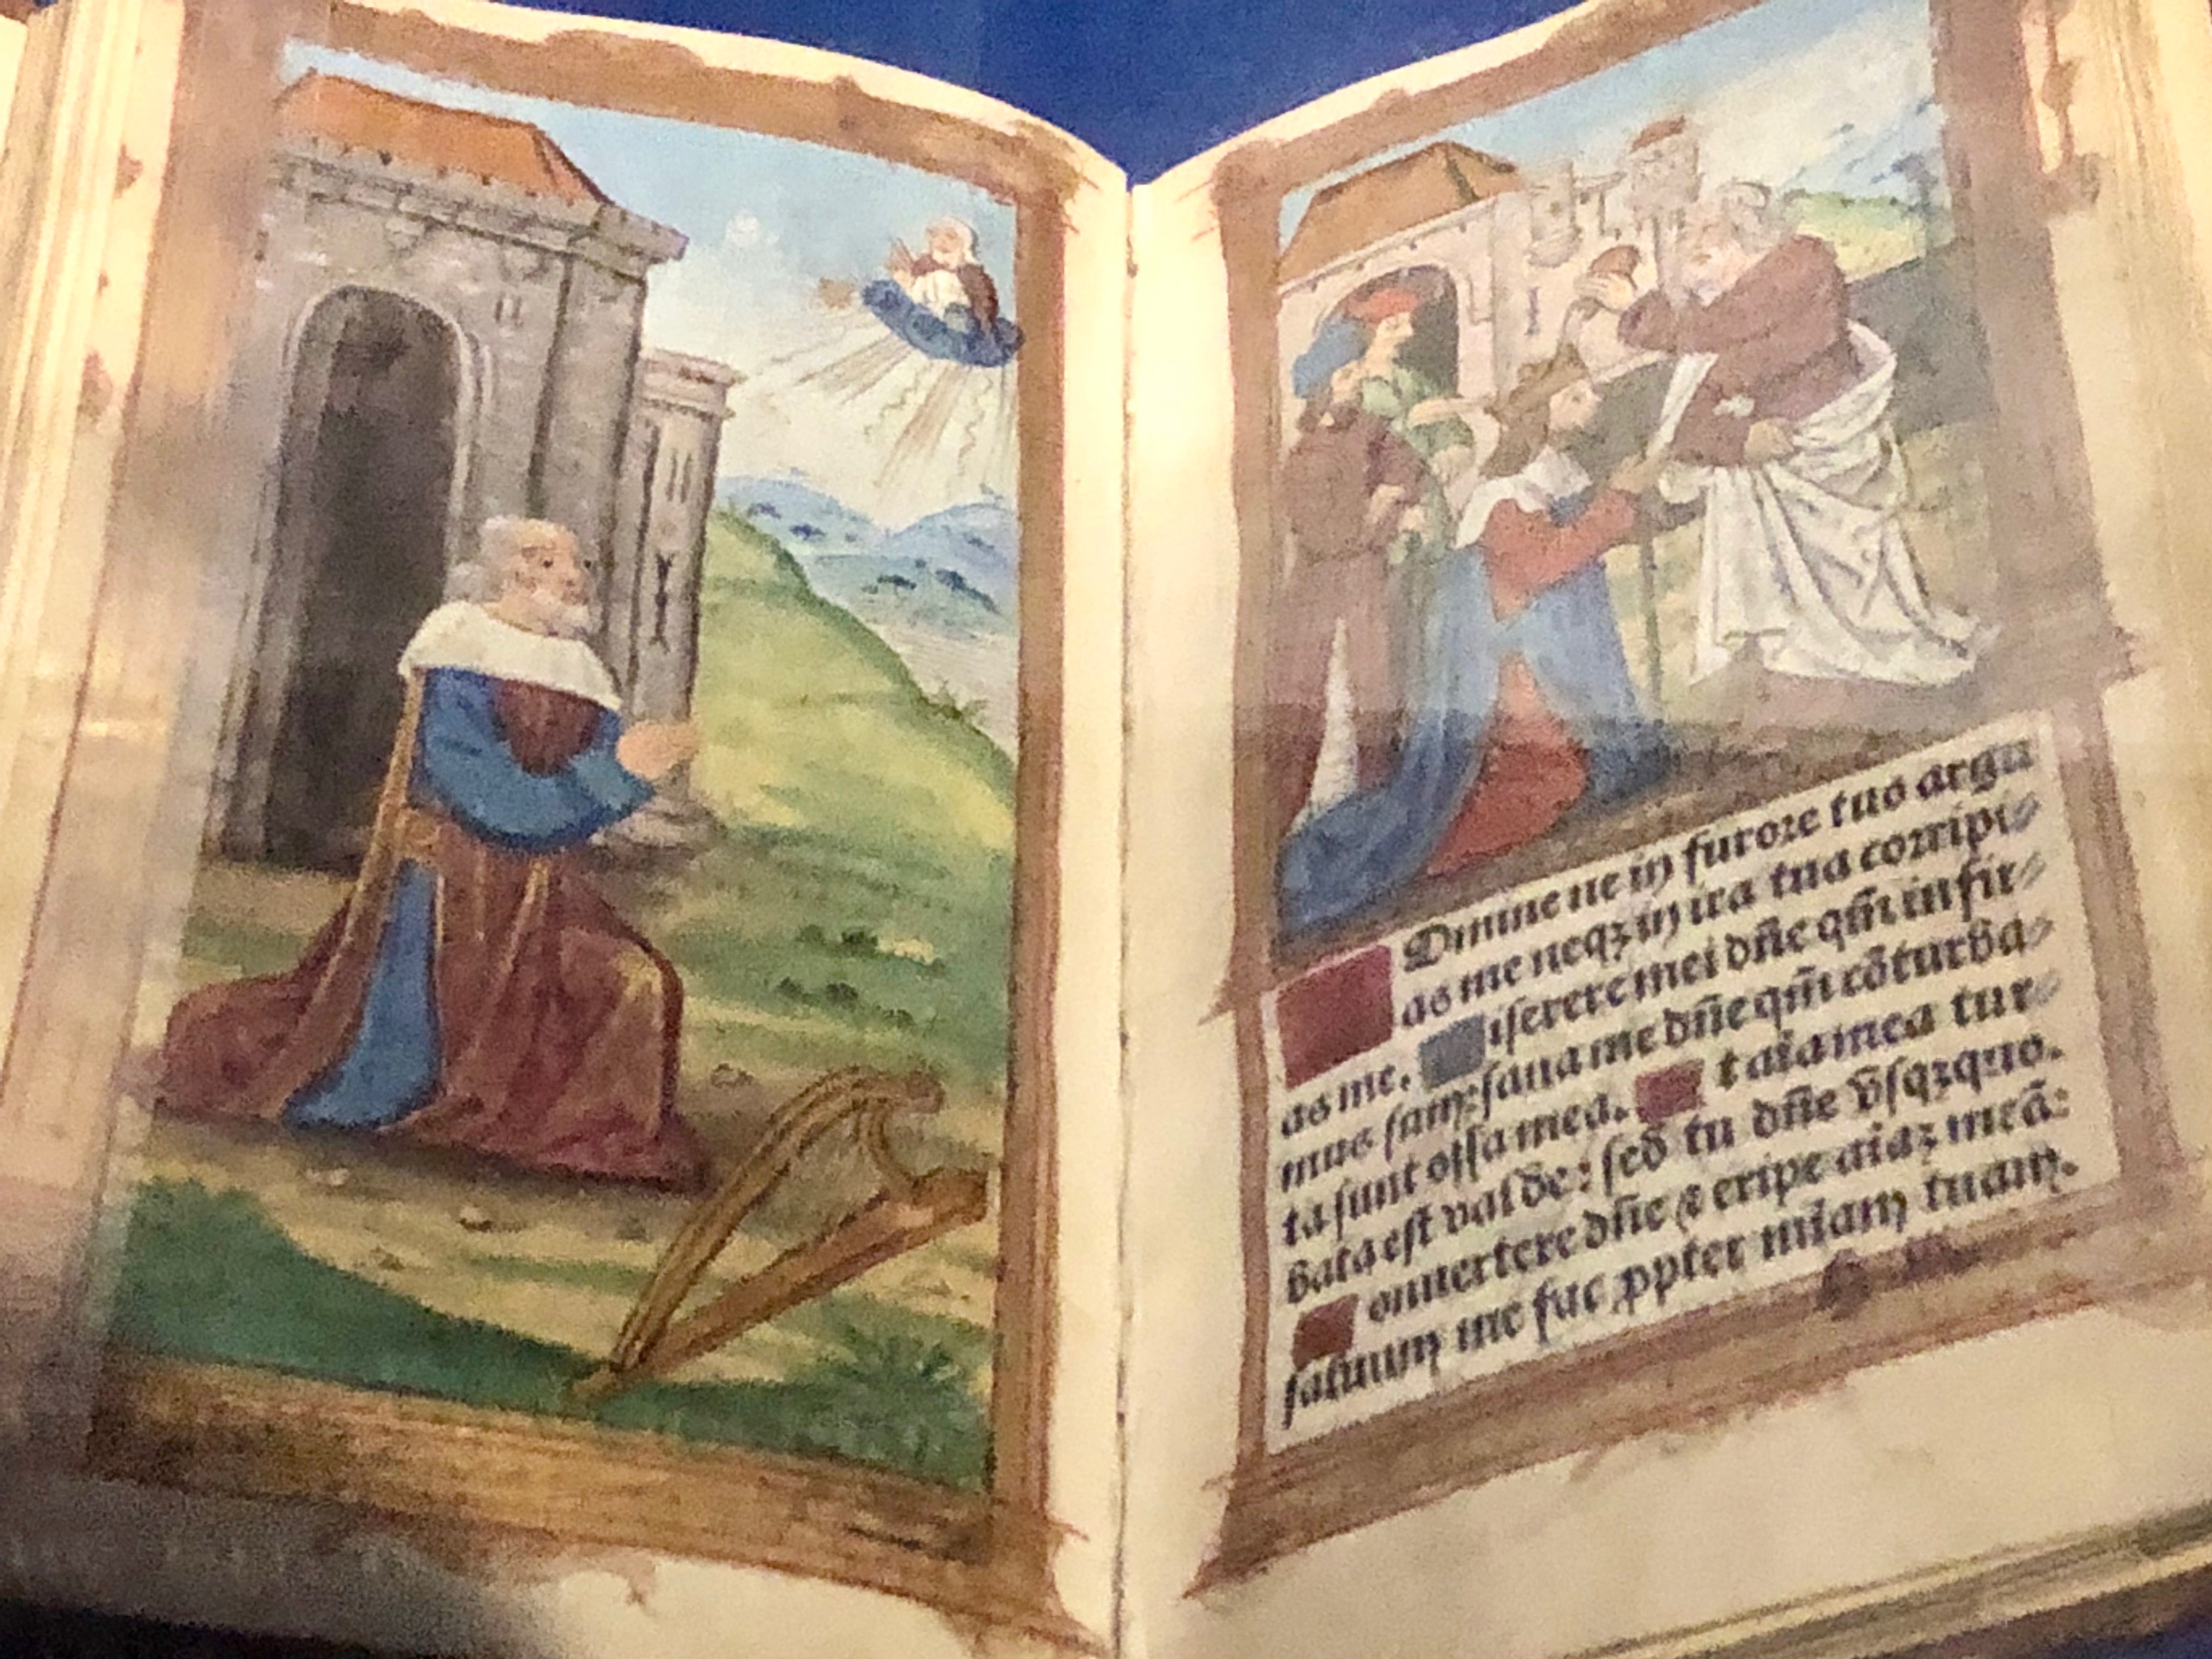 Domine ne in furore tuo argu
as me neqz in ira tua corripi
as me. isere re mei dñe qm̃ infir
mus sum: sana me dñe qm̃ cõturba
ta sunt ossa mea. t aĩa mea tur
bata est valde: sed tu dñe vsqzquo.
onuertere dñe & eripe aĩaz meã:
saluum me fac ppter miam tuam.